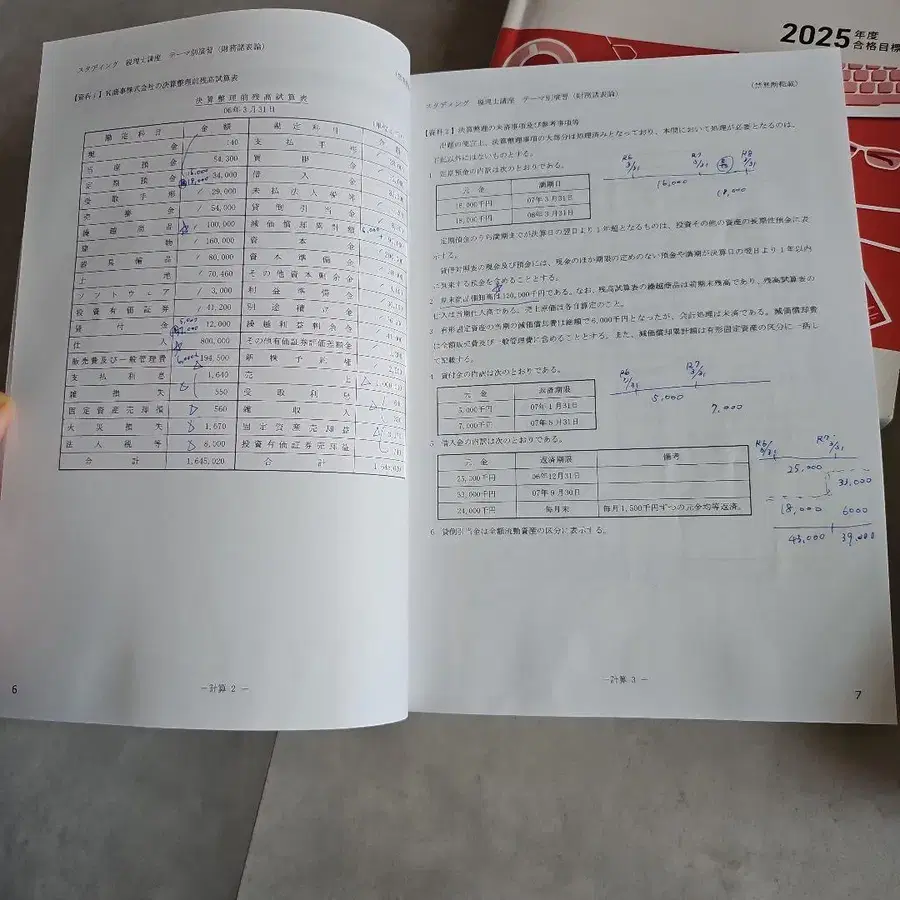 2025年度
合格目標
スタディング 税理士講座 テーマ別演習(財務諸表論)
【資料1】K商事株式会社の決算整理前残高試算表
決算整理前残高試算表
06年3月31日
勘定科目 金額 勘定科目
現金 140 支払手形
当座預金 54,300 買掛金
定期預金 34,000 借入金
受取手形 29,000 未払法人税等
売掛金 54,000 貸倒引当金
繰越商品 100,000 減価償却累計額
建物 160,000 資本金
備品 80,000 資本準備金
土地 70,460 その他資本剰余金
ソフトウェア 3,000 利益準備金
投資有価証券 41,200 別途積立金
貸付金 12,000 繰越利益剰余金
仕入 800,000 その他有価証券評価差額金
販売費及び一般管理費 194,500 新株予約権
支払利息 1,640 売上
雑損失 550 受取利息
固定資産売却損 560 雑収入
火災損失 1,670 固定資産売却益
法人税等 8,000 投資有価証券売却益
合計 1,645,020 合計 1,645,020
6
-計算 2-
スタディング 税理士講座 テーマ別演習(財務諸表論)
(禁無断転載)
【資料2】決算整理の未済事項及び参考事項等
出題の便宜上、決算整理事項の大部分は処理済みとなっており、本問において処理が必要となるのは、
下記以外にはないものとする。
1 定期預金の内訳は次のとおりである。
元金 満期日
16,000千円 07年3月31日
18,000千円 08年3月31日
R6 3/31 R7 3/31 R8 3/31
16,000
18,000
定期預金のうち満期日が決算日の翌日より1年超となるものは、投資その他の資産の長期性預金に表
示する。
貸借対照表の現金及び預金には、現金のほか期限の定めのない預金や満期が決算日の翌日より1年以内
に到来する預金を含めることとする。
2 期末商品棚卸高は120,000千円である。なお、残高試算表の繰越商品は前期末残高であり、残高試算表の
仕入は当期仕入高である。売上原価は各自算定のこと。
3 有形固定資産の当期の減価償却費は総額で6,000千円となったが、会計処理は未済である。減価償却費
は全額販売費及び一般管理費に含めることとする。また、減価償却累計額は有形固定資産の区分に一括し
て記載する。
4 貸付金の内訳は次のとおりである。
元金 返済期限
5,000千円 07年1月31日
7,000千円 07年8月31日
R6 3/31 R7 3/31
5,000
7,000
5 借入金の内訳は次のとおりである。
元金 返済期限 備考
25,000千円 06年12月31日
33,000千円 07年9月30日
24,000千円 毎月末 毎月1,500千円ずつの元金均等返済。
R6 3/31 R7 3/31
25,000
33,000
18,000 6000
43,000 39,000
6 貸倒引当金は全額流動資産の区分に表示する。
-計算 3-
7